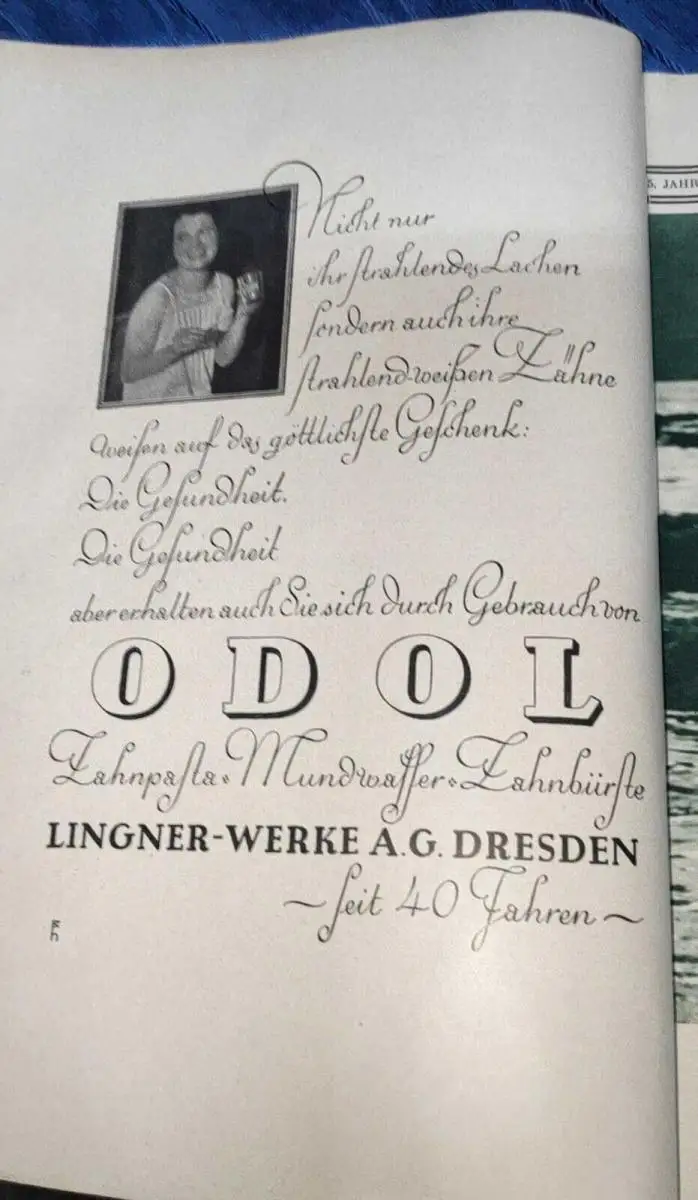 Nicht nur
ihr strahlendes Lachen
sondern auch ihre
strahlend-weißen Zähne
weisen auf das göttlichste Geschenk:
Die Gesundheit.
Die Gesundheit
aber erhalten auch Sie sich durch Gebrauch von
ODOL
Zahnpasta • Mundwasser • Zahnbürste
LINGNER-WERKE A.G. DRESDEN
~ seit 40 Jahren ~
5. JAHR